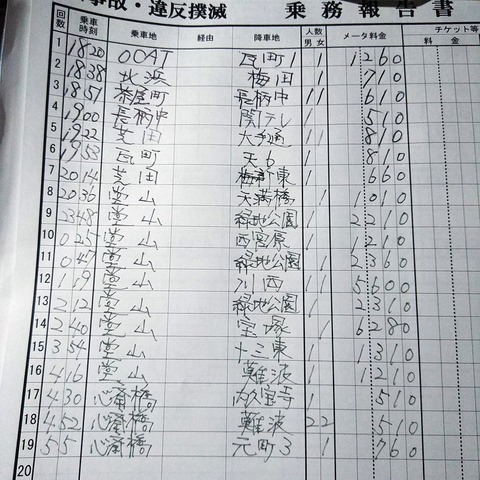 事故・違反撲滅 乗務報告書
回数 乗車時刻 乗車地 経由 降車地 人数 男 女 メータ料金 チケット等 料金
1 18 20 OCAT 瓦町1 1 1260
2 18 38 北浜 梅田 1 710
3 18 51 茶屋町 長柄中 1 1 610
4 19 00 長柄中 関テレ 1 510
5 19 22 芝田 大手通 1 1 810
6 19 53 瓦町 天6 1 810
7 20 14 芝田 東 1 660
8 20 36 堂山 天満橋 1 1010
9 23 48 堂山 緑地公園 1 2210
10 0 25 堂山 西宮原 1 1210
11 0 47 堂山 緑地公園 1 2360
12 1 19 堂山 川西 1 5600
13 2 12 堂山 緑地公園 1 2310
14 2 40 堂山 宝塚 1 6280
15 3 54 堂山 十三東 1 1310
16 4 16 堂山 難波 1 1210
17 4 30 心斎橋 内久宝寺 1 510
18 4 52 心斎橋 難波 2 2 510
19 5 5 心斎橋 元町3 1 760
20